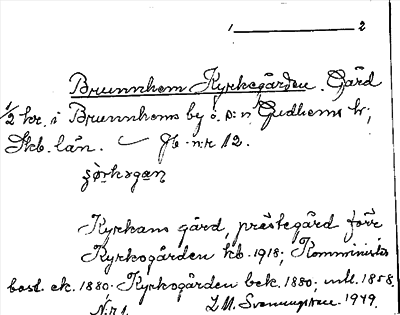 1 2
Brunnhem Kyrkogården. Gård
1/2 hr. i Brunnhems by o. s:n Gudhems hd,
Skb. län. Jb. n:r 12.
Kyrkans gård, prästegård förr
Kyrkogården kb. 1918; Komminister
bost. ek. 1880. Kyrkogården bek. 1880; mtl. 1858.
N:r 1. 1949.